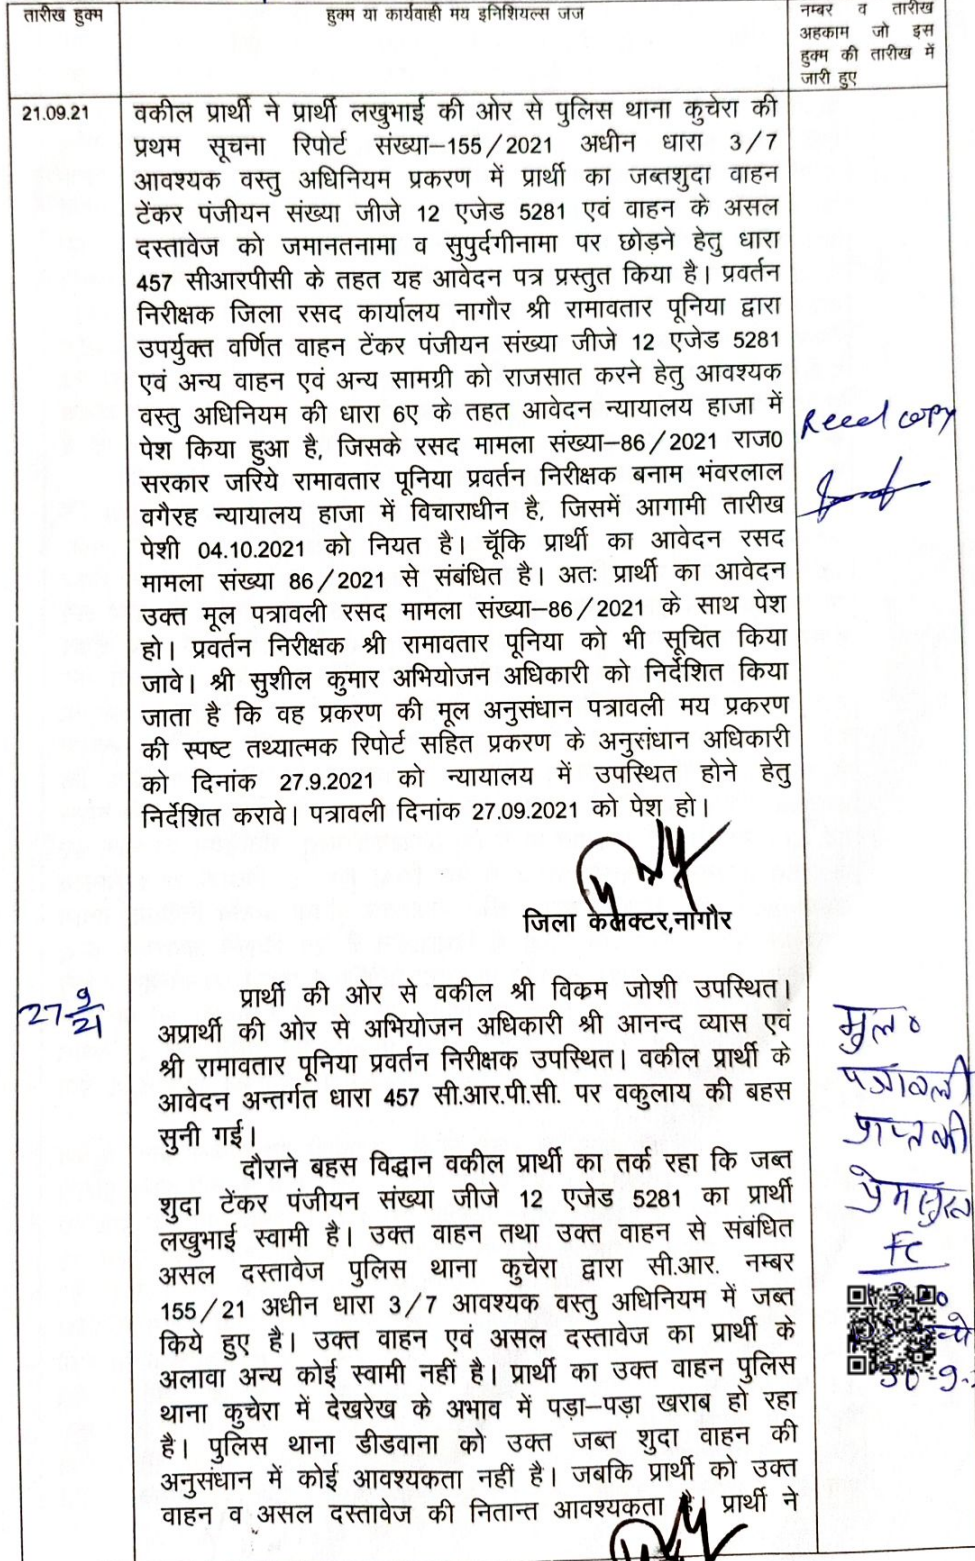 तारीख हुक्म
हुक्म या कार्यवाही मय इनिशियल्स जज
नम्बर व तारीख
अहकाम जो इस
हुक्म की तारीख में
जारी हुए
21.09.21
वकील प्रार्थी ने प्रार्थी लखुभाई की ओर से पुलिस थाना कुचेरा की
प्रथम सूचना रिपोर्ट संख्या–155/2021 अधीन धारा 3/7
आवश्यक वस्तु अधिनियम प्रकरण में प्रार्थी का जब्तशुदा वाहन
टेंकर पंजीयन संख्या जीजे 12 एजेड 5281 एवं वाहन के असल
दस्तावेज को जमानतनामा व सुपुर्दगीनामा पर छोड़ने हेतु धारा
457 सीआरपीसी के तहत यह आवेदन पत्र प्रस्तुत किया है। प्रवर्तन
निरीक्षक जिला रसद कार्यालय नागौर श्री रामावतार पूनिया द्वारा
उपर्युक्त वर्णित वाहन टेंकर पंजीयन संख्या जीजे 12 एजेड 5281
एवं अन्य वाहन एवं अन्य सामग्री को राजसात करने हेतु आवश्यक
वस्तु अधिनियम की धारा 6ए के तहत आवेदन न्यायालय हाजा में
पेश किया हुआ है, जिसके रसद मामला संख्या–86/2021 राज0
सरकार जरिये रामावतार पूनिया प्रवर्तन निरीक्षक बनाम भंवरलाल
वगैरह न्यायालय हाजा में विचाराधीन है, जिसमें आगामी तारीख
पेशी 04.10.2021 को नियत है। चूंकि प्रार्थी का आवेदन रसद
मामला संख्या 86/2021 से संबंधित है। अतः प्रार्थी का आवेदन
उक्त मूल पत्रावली रसद मामला संख्या–86/2021 के साथ पेश
हो। प्रवर्तन निरीक्षक श्री रामावतार पूनिया को भी सूचित किया
जावे। श्री सुशील कुमार अभियोजन अधिकारी को निर्देशित किया
जाता है कि वह प्रकरण की मूल अनुसंधान पत्रावली मय प्रकरण
की स्पष्ट तथ्यात्मक रिपोर्ट सहित प्रकरण के अनुसंधान अधिकारी
को दिनांक 27.9.2021 को न्यायालय में उपस्थित होने हेतु
निर्देशित करावे। पत्रावली दिनांक 27.09.2021 को पेश हो।
जिला कलक्टर,नागौर
copy
27 9/21
प्रार्थी की ओर से वकील श्री विक्रम जोशी उपस्थित।
अप्रार्थी की ओर से अभियोजन अधिकारी श्री आनन्द व्यास एवं
श्री रामावतार पूनिया प्रवर्तन निरीक्षक उपस्थित। वकील प्रार्थी के
आवेदन अन्तर्गत धारा 457 सी.आर.पी.सी. पर वकुलाय की बहस
सुनी गई।
दौराने बहस विद्धान वकील प्रार्थी का तर्क रहा कि जब्त
शुदा टेंकर पंजीयन संख्या जीजे 12 एजेड 5281 का प्रार्थी
लखुभाई स्वामी है। उक्त वाहन तथा उक्त वाहन से संबंधित
असल दस्तावेज पुलिस थाना कुचेरा द्वारा सी.आर. नम्बर
155/21 अधीन धारा 3/7 आवश्यक वस्तु अधिनियम में जब्त
किये हुए है। उक्त वाहन एवं असल दस्तावेज का प्रार्थी के
अलावा अन्य कोई स्वामी नहीं है। प्रार्थी का उक्त वाहन पुलिस
थाना कुचेरा में देखरेख के अभाव में पड़ा–पड़ा खराब हो रहा
है। पुलिस थाना डीडवाना को उक्त जब्त शुदा वाहन की
अनुसंधान में कोई आवश्यकता नहीं है। जबकि प्रार्थी को उक्त
वाहन व असल दस्तावेज की नितान्त आवश्यकता है। प्रार्थी ने
मूल
पत्रावली
प्राप्त की
प्रेमसुख
FC
30-9-